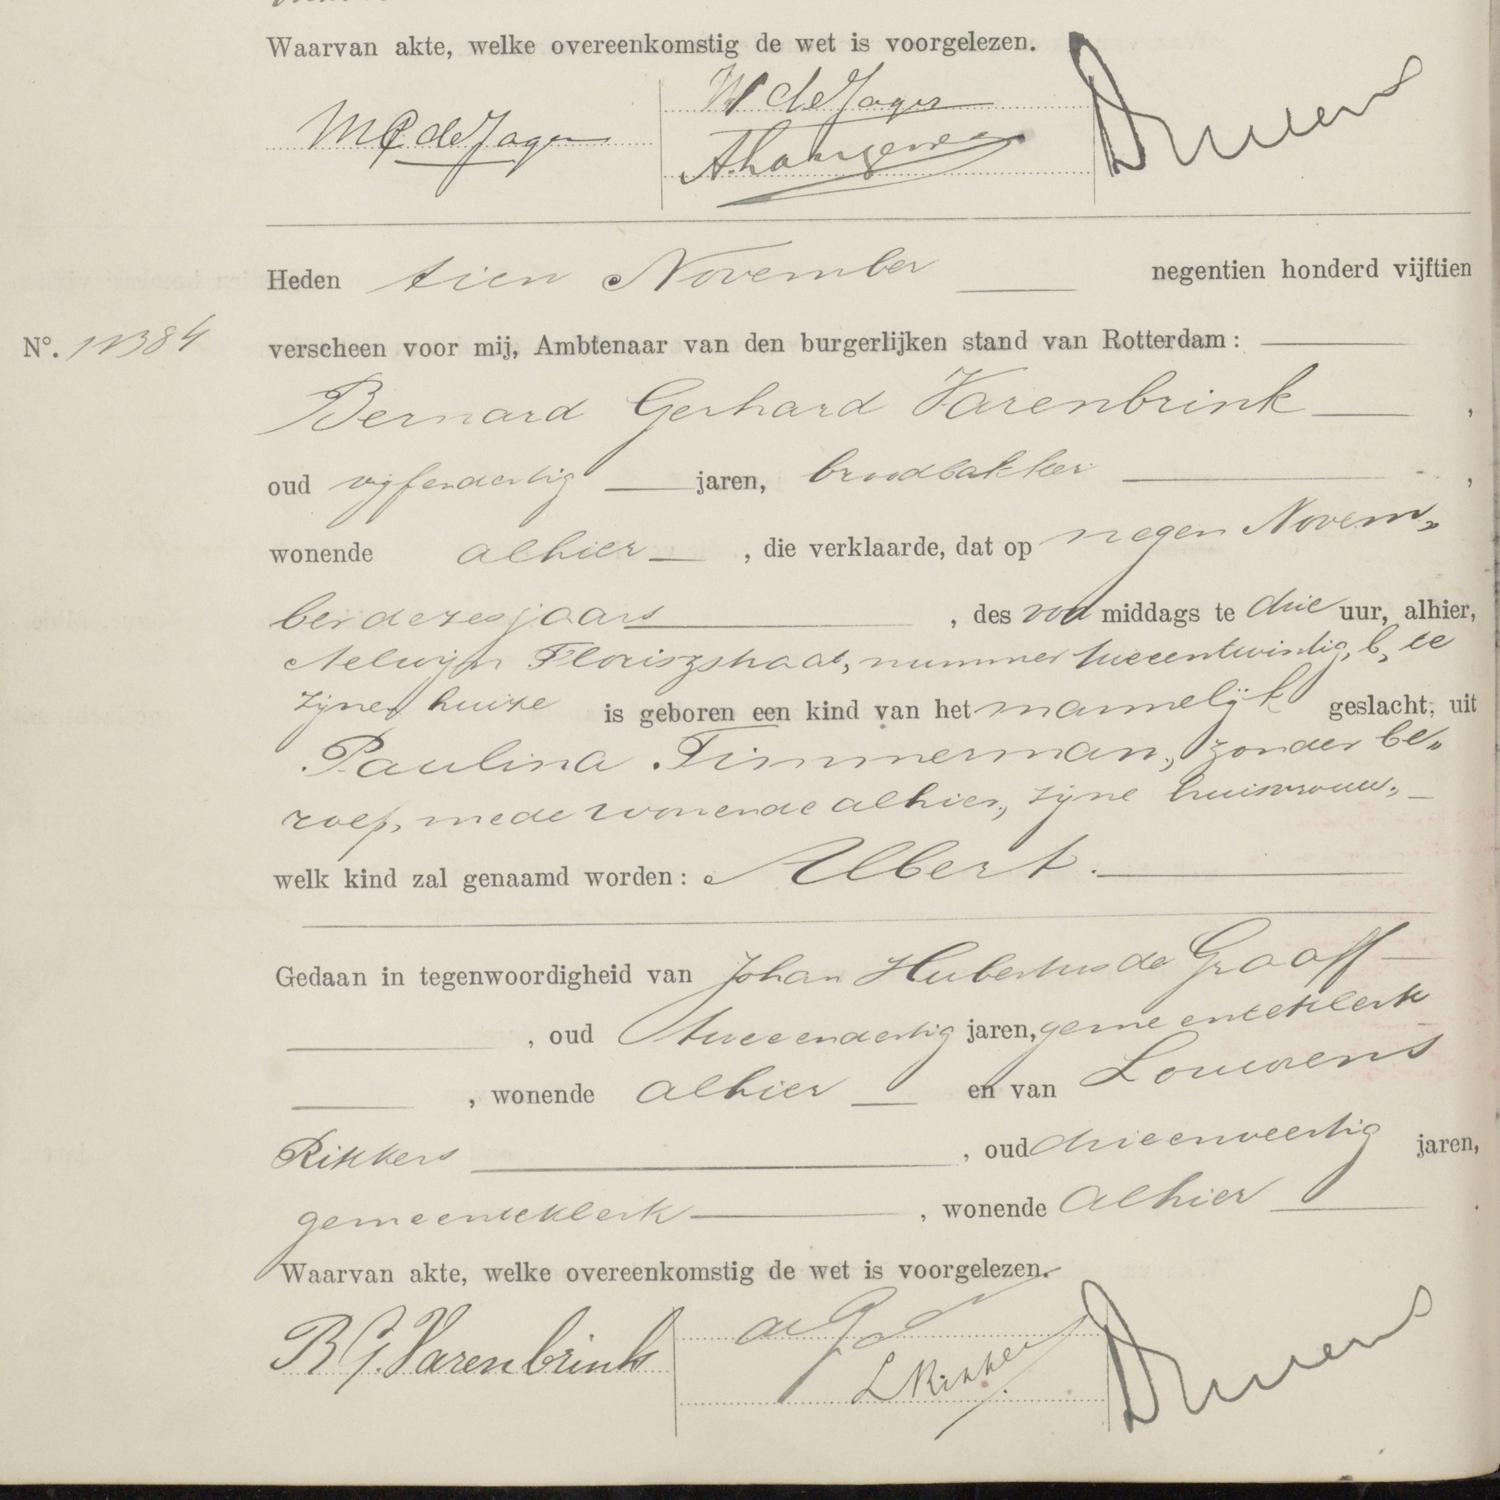 Waarvan akte, welke overeenkomstig de wet is voorgelezen.
W de Jager
MC de Jager
Heden tien November negentien honderd vijftien
N°. 11384 verscheen voor mij, Ambtenaar van den burgerlijken stand van Rotterdam:
Bernard Gerhard Varenbrink,
oud vijfendertig jaren, broodbakker,
wonende alhier, die verklaarde, dat op negen Novem„
ber dezes jaars, des voormiddags te drie uur, alhier,
Aelwijn Floriszstraat, nummer tweeentwintig, b, te
zijnen huize is geboren een kind van het mannelijk geslacht, uit
Paulina Timmerman, zonder be„
roep, mede wonende alhier, zijne huisvrouw,
welk kind zal genaamd worden: Albert.
Gedaan in tegenwoordigheid van Johan Hubertus de Graaff
, oud tweeendertig jaren, gemeenteklerk
, wonende alhier en van Louwrens
Rikkers, oud drieenveertig jaren,
gemeenteklerk, wonende alhier.
Waarvan akte, welke overeenkomstig de wet is voorgelezen.
B G. Varenbrink
L Rikkers